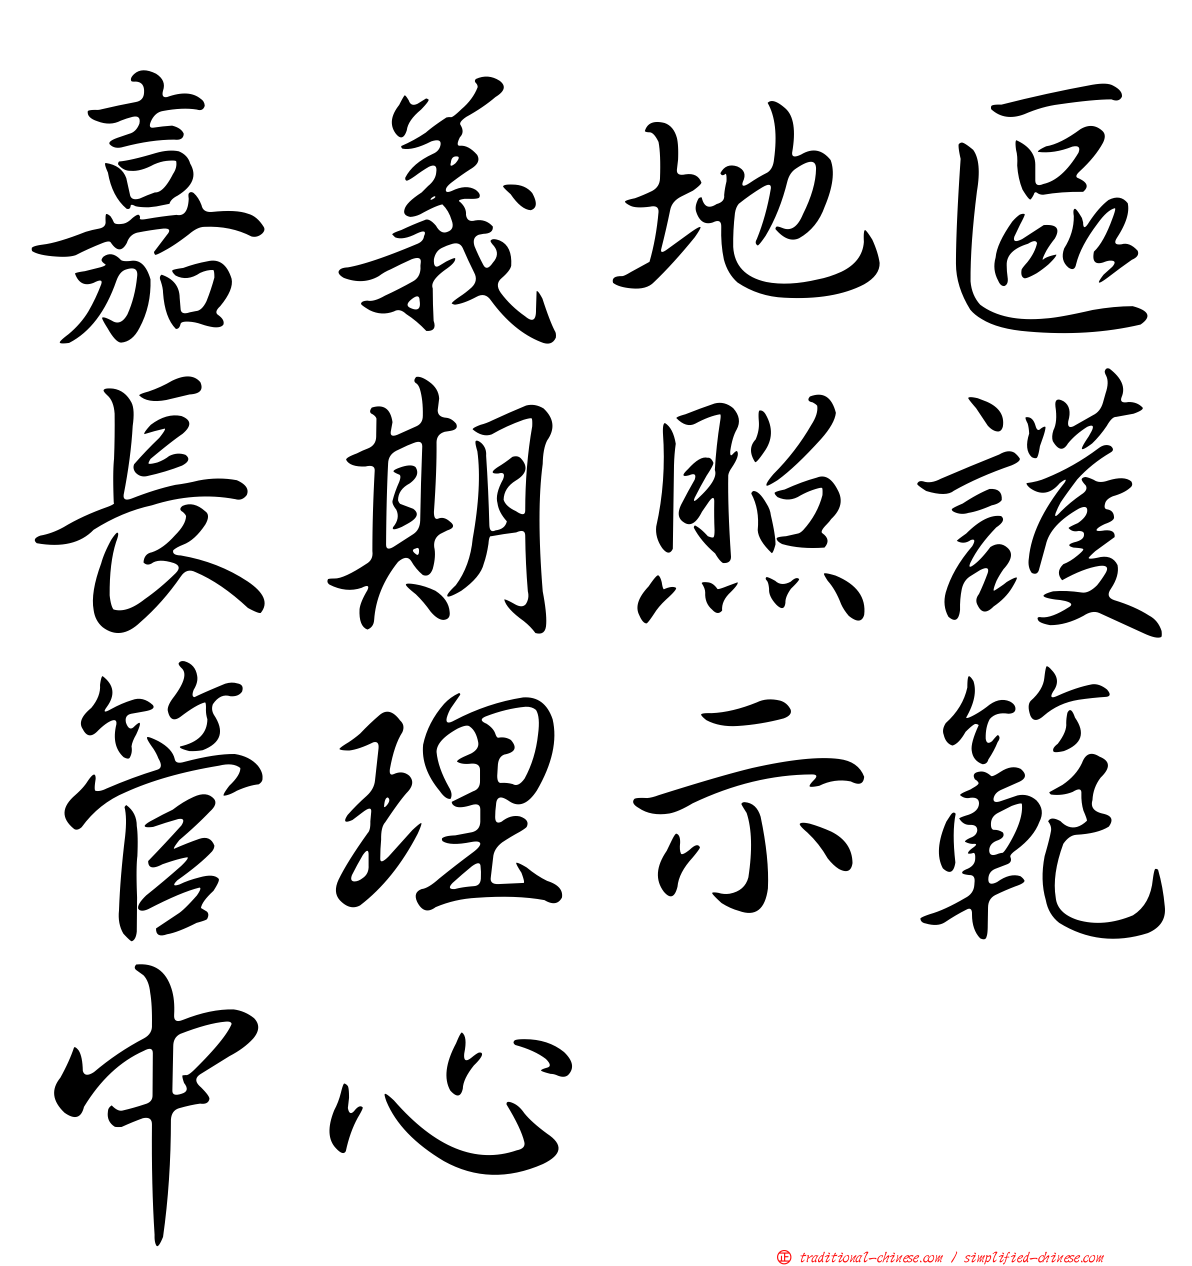 嘉義地區
長期照護
管理示範
中心
㊣ traditional-chinese.com / simplified-chinese.com